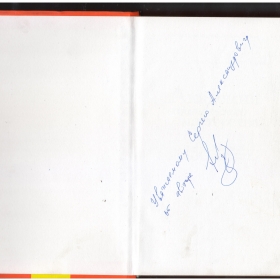 Уважаемому Сергею Александровичу
от автора